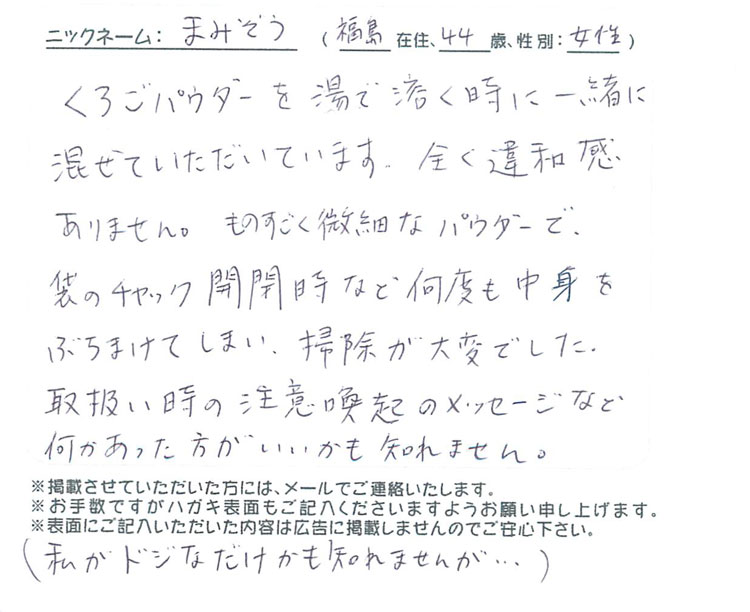 ニックネーム：まみぞう （福島在住、44歳、性別：女性）
くろごパウダーを湯で溶く時に一緒に
混ぜていただいています。全く違和感
ありません。ものすごく微細なパウダーで、
袋のチャック開閉時など何度も中身を
ぶちまけてしまい、掃除が大変でした。
取扱い時の注意喚起のメッセージなど
何かあった方がいいかも知れません。
※掲載させていただいた方には、メールでご連絡いたします。
※お手数ですがハガキ表面もご記入くださいますようお願い申し上げます。
※表面にご記入いただいた内容は広告に掲載しませんのでご安心下さい。
（私がドジなだけかも知れませんが…）